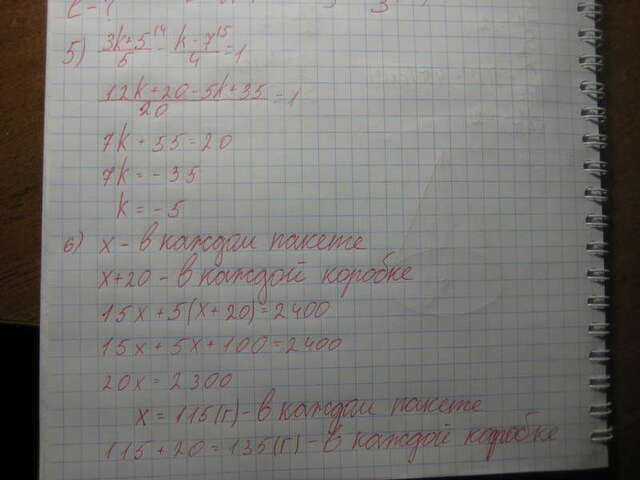 5) (3k+5)/5 |4 - (k-7)/4 |5 = 1
(12k+20-5k+35)/20 = 1
7k+55=20
7k=-35
k=-5
6) x - в каждом пакете
x+20 - в каждой коробке
15x+5(x+20)=2400
15x+5x+100=2400
20x=2300
x=115(г)-в каждом пакете
115+20=135(г)-в каждой коробке